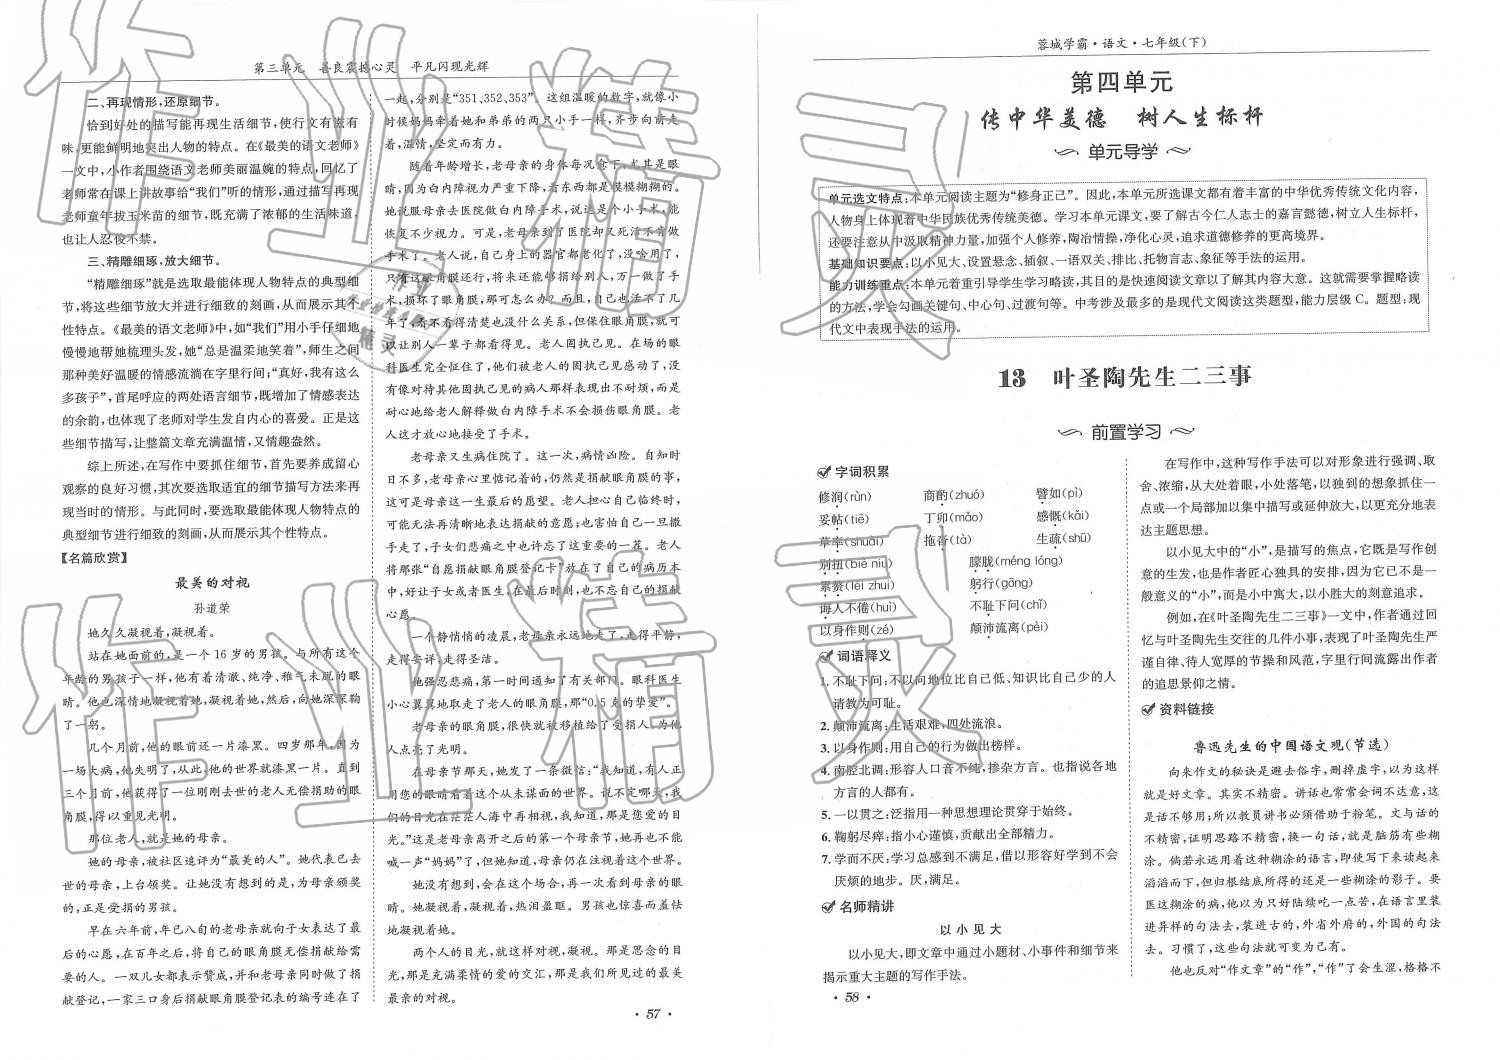 第三单元　善良震撼心灵　平凡闪现光辉
二、再现情形,还原细节。
恰到好处的描写能再现生活细节,使行文有滋有
味,更能鲜明地突出人物的特点。在《最美的语文老师》
一文中,小作者围绕语文老师美丽温婉的特点,回忆了
老师常在课上讲故事给“我们”听的情形,通过描写再现
老师童年拔玉米苗的细节,既充满了浓郁的生活味道,
也让人忍俊不禁。
三、精雕细琢,放大细节。
“精雕细琢”就是选取最能体现人物特点的典型细
节,将这些细节放大并进行细致的刻画,从而展示其个
性特点。《最美的语文老师》中,如“我们”用小手仔细地
慢慢地帮她梳理头发,她“总是温柔地笑着”,师生之间
那种美好温暖的情感流淌在字里行间;“真好,我有这么
多孩子”,首尾呼应的两处语言细节,既增加了情感表达
的余韵,也体现了老师对学生发自内心的喜爱。正是这
些细节描写,让整篇文章充满温情,又情趣盎然。
综上所述,在写作中要抓住细节,首先要养成留心
观察的良好习惯,其次要选取适宜的细节描写方法来再
现当时的情形。与此同时,要选取最能体现人物特点的
典型细节进行细致的刻画,从而展示其个性特点。
【名篇欣赏】
最美的对视
孙道荣
她久久凝视着,凝视着。
站在她面前的,是一个16岁的男孩。与所有这个
年龄的男孩子一样,他有着清澈、纯净、稚气未脱的眼
睛。他也深情地凝视着她,凝视着她,然后,向她深深鞠
了一躬。
几个月前,他的眼前还一片漆黑。四岁那年,因为
一场大病,他失明了,从此,他的世界就漆黑一片。直到
三个月前,他获得了一位刚刚去世的老人无偿捐助的眼
角膜,得以重见光明。
那位老人,就是她的母亲。
她的母亲,被社区追评为“最美的人”。她代表已去
世的母亲,上台领奖。让她没有想到的是,为母亲颁奖
的,正是受捐的男孩。
早在六年前,年已八旬的老母亲就向子女表达了最
后的心愿,在百年之后,将自己的眼角膜无偿捐献给需
要的人。一双儿女都表示赞成,并和老母亲同时做了捐
献登记,一家三口身后捐献眼角膜登记表的编号连在了
一起,分别是“351、352、353”。这组温暖的数字,就像小
时候妈妈牵着她和弟弟的两只小手一样,齐步向前走
着,温情,坚定而有力。
随着年龄增长,老母亲的身体每况愈下,尤其是眼
睛,因为白内障视力严重下降,看东西都是模模糊糊的。
她说服母亲去医院做白内障手术,说这是个小手术,能
恢复不少视力。可是,老母亲到了医院却又死活不肯做
手术了。老人说,自己身上的器官都老化了,没啥用了,
只有这眼角膜还行,将来还能够捐给别人,万一做了手
术,损坏了眼角膜,那可怎么办?而且,自己也活不了几
年了,看不看得清楚也没什么关系,但保住眼角膜,就可
以让别人一辈子都看得见。老人固执己见。在场的眼
科医生完全怔住了,他们被老人的固执己见感动了,没
有像对待其他固执己见的病人那样表现出不耐烦,而是
耐心地给老人解释做白内障手术不会损伤眼角膜。老
人这才放心地接受了手术。
老母亲又生病住院了。这一次,病情凶险。自知时
日不多,老母亲心里惦记着的,仍然是捐献眼角膜的事,
这可是母亲这一生最后的愿望。老人担心自己临终时,
可能无法再清晰地表达捐献的意愿;也害怕自己一旦撒
手走了,子女们悲痛之中也许忘了这重要的一茬。老人
将那张“自愿捐献眼角膜登记卡”放在了自己的病历本
中,好让子女或者医生,在最后时刻,也不忘自己的捐献
心愿。
一个静悄悄的凌晨,老母亲永远地走了,走得平静,
走得安详,走得圣洁。
她强忍悲痛,第一时间通知了有关部门。眼科医生
小心翼翼地取走了老人的眼角膜,那“0.5克的挚爱”。
老母亲的眼角膜,很快就被移植给了受捐人,为他
人点亮了光明。
在母亲节那天,她发了一条微信:“我知道,有人正
用您的眼睛看着这个从未谋面的世界。说不定哪天,我
们的目光在茫茫人海中再相视,我知道,那是您爱的目
光。”这是老母亲离开之后的第一个母亲节,她再也不能
喊一声“妈妈”了,但她知道,母亲仍在注视着这个世界。
她没有想到,会在这个场合,再一次看到母亲的眼
睛。她凝视着,凝视着,热泪盈眶。男孩也惊喜而羞怯
地凝视着她。
两个人的目光,就这样对视,凝视。那是思念的目
光,那是充满柔情的爱的交汇,那是我们所见过的最美
最亲的对视。
· 57 ·
蓉城学霸·语文·七年级(下)
第四单元
传中华美德　树人生标杆
单元导学
单元选文特点:本单元阅读主题为“修身正己”。因此,本单元所选课文都有着丰富的中华优秀传统文化内容,
人物身上体现着中华民族优秀传统美德。学习本单元课文,要了解古今仁人志士的嘉言懿德,树立人生标杆,
还要注意从中汲取精神力量,加强个人修养,陶冶情操,净化心灵,追求道德修养的更高境界。
基础知识要点:以小见大、设置悬念、插叙、一语双关、排比、托物言志、象征等手法的运用。
能力训练重点:本单元着重引导学生学习略读,其目的是快速阅读文章以了解其内容大意。这就需要掌握略读
的方法,学会勾画关键句、中心句、过渡句等。中考涉及最多的是现代文阅读这类题型,能力层级C。题型:现
代文中表现手法的运用。
13　叶圣陶先生二三事
前置学习
字词积累
修润(rùn)　商酌(zhuó)　譬如(pì)
妥帖(tiē)　丁卯(mǎo)　感慨(kǎi)
草率(shuài)　拖沓(tà)　生疏(shū)
别扭(biè niu)　朦胧(méng lóng)
累赘(léi zhui)　躬行(gōng)
诲人不倦(huì)　不耻下问(chǐ)
以身作则(zé)　颠沛流离(pèi)
词语释义
1. 不耻下问:不以向地位比自己低、知识比自己少的人
请教为可耻。
2. 颠沛流离:生活艰难,四处流浪。
3. 以身作则:用自己的行为做出榜样。
4. 南腔北调:形容人口音不纯,掺杂方言。也指说各地
方言的人都有。
5. 一以贯之:泛指用一种思想理论贯穿于始终。
6. 鞠躬尽瘁:指小心谨慎,贡献出全部精力。
7. 学而不厌:学习总感到不满足,借以形容好学到不会
厌烦的地步。厌,满足。
名师精讲
以小见大
以小见大,即文章中通过小题材、小事件和细节来
揭示重大主题的写作手法。
在写作中,这种写作手法可以对形象进行强调、取
舍、浓缩,从大处着眼,小处落笔,以独到的想象抓住一
点或一个局部加以集中描写或延伸放大,以更充分地表
达主题思想。
以小见大中的“小”,是描写的焦点,它既是写作创
意的生发,也是作者匠心独具的安排,因为它已不是一
般意义的“小”,而是小中寓大,以小胜大的刻意追求。
例如,在《叶圣陶先生二三事》一文中,作者通过回
忆与叶圣陶先生交往的几件小事,表现了叶圣陶先生严
谨自律、待人宽厚的节操和风范,字里行间流露出作者
的追思景仰之情。
资料链接
鲁迅先生的中国语文观(节选)
向来作文的秘诀是避去俗字,删掉虚字,以为这样
就是好文章。其实不精密。讲话也常常会词不达意,这
是话不够用;所以教员讲书必须借助于粉笔。文与话的
不精密,证明思路不精密,换一句话,就是脑筋有些糊
涂。倘若永远用着这种糊涂的语言,即使写下来读起来
滔滔而下,但归根结底所得的还是一些糊涂的影子。要
医这糊涂的病,他以为只好陆续吃一点苦,在语言里装
进异样的句法去,装进古的,外省外府的,外国的句法
去。习惯了,这些句法就可变为已有。
他也反对“作文章”的“作”,“作”了会生涩,格格不
· 58 ·
作业精灵
作业精灵